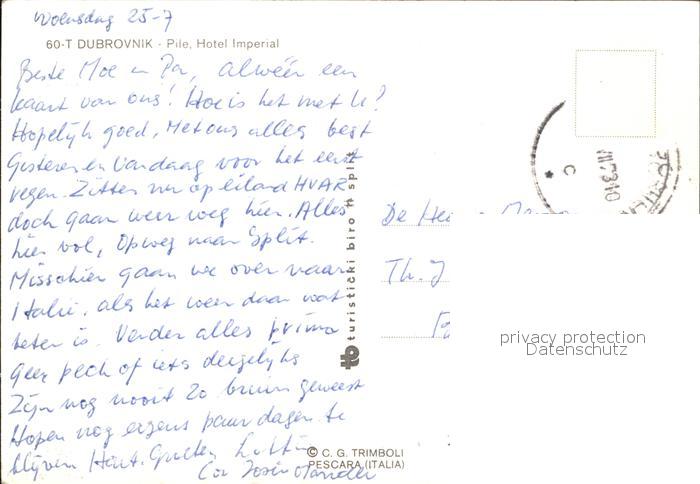 Woensdag 25-7
60-T DUBROVNIK - Pile, Hotel Imperial
Beste Moe en Pa, alweer een
kaart van ons! Hoe is het met U?
Hopelijk goed, Met ons alles best
Gisteren en Vandaag voor het eerst
regen. Zitten nu op eiland HVAR
doch gaan weer weg hier. Alles
hier vol, Op weg naar Split.
Misschien gaan we over naar
Italie, als het weer daar wat
beter is. Verder alles prima
Geen pech of iets dergelijks
Zijn nog nooit zo bruin geweest
Hopen nog ergens paar dagen te
blijven Hart. Groeten
Cor
turistički biro split
tb
C
III 73 10
De
Th. J
privacy protection
Datenschutz
© C. G. TRIMBOLI
PESCARA (ITALIA)